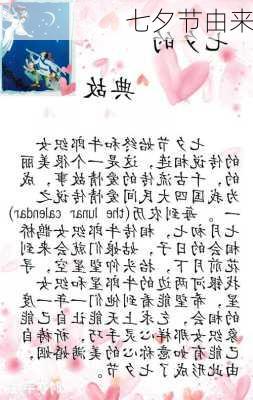 七夕节由来
七夕的
典故
七夕节始终和牛郎织女
的传说相连，这是一个很美丽
的，千古流传的爱情故事，成
为我国四大民间爱情传说之
一。每到农历(the lunar calendar)
七月初七，相传牛郎织女鹊桥
相会的日子，姑娘们就会来到
花前月下，抬头仰望星空，寻
找银河两边的牛郎星和织女
星，希望能看到他们一年一度
的相会，乞求上天能让自己能
象织女那样心灵手巧，祈祷自
己能有如意称心的美满婚姻，
由此形成了七夕节。